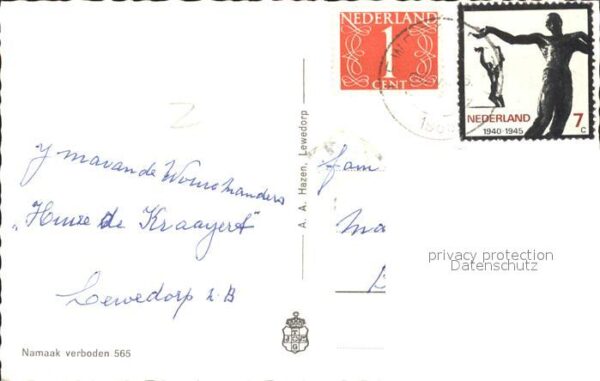 NEDERLAND
1
CENT
NEDERLAND 7 c
1940-1945
"Huize de Kraayert"
Lewedorp Z.B
Fam
Ma
A. A. Hazen, Lewedorp
privacy protection
Datenschutz
Namaak verboden 565